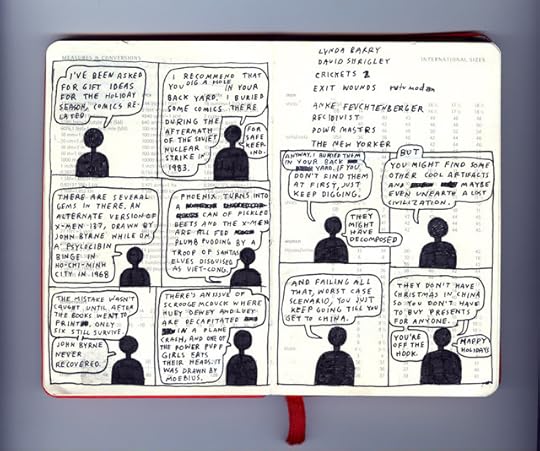 MEASURES & CONVERSIONS
I'VE BEEN ASKED
FOR GIFT IDEAS
FOR THE HOLIDAY
SEASON, COMICS RE-
LATED.
I RECOMMEND THAT
YOU DIG A HOLE
IN YOUR
BACK YARD, I BURIED
SOME COMICS THERE
DURING THE
AFTERMATH
OF THE SOVIET
NUCLEAR
STRIKE IN
1983.
FOR
SAFE
KEEP
ING.
THERE ARE SEVERAL
GEMS IN THERE, AN
ALTERNATE VERSION OF
X-MEN 137, DRAWN BY
JOHN BYRNE WHILE ON
A PSYLOCIBIN
BINGE IN
HO-CHI-MINH
CITY IN 1968
PHOENIX TURNS INTO
A
CAN OF PICKLED
BEETS AND THE X-MEN
ARE ALL FED
PLUMB PUDDING BY A
TROOF OF SANTAS
ELVES DISGUISED
AS VIET-CONG.
THE MISTAKE WASN'T
CAUGHT UNTIL AFTER
THE BOOKS WENT TO
PRINT, ONLY
SIX STILL SURVIVE.
JOHN BYRNE
NEVER
RECOVERED.
THERE'S AN ISSUE OF
SCROOGE MCDUCK WHERE
HUEY DEWEY AND LUEY
ARE DECAPITATED
IN A PLANE
CRASH, AND ONE OF
THE POWER PUFF
GIRLS EATS
THEIR HEADS. IT
WAS DRAWN BY
MOEBIUS.
INTERNATIONAL SIZES
LYNDA BARRY
DAVID SHRIGLEY
CRICKETS 2
EXIT WOUNDS rutu modan
ANKE FEUCHTENBERGER
RECIDIVIST
POWR MASTRS
THE NEW YORKER
ANYWAY, I BURIED THEM
IN YOUR BACK
YARD, IF YOU
DON'T FIND THEM
AT FIRST, JUST
KEEP DIGGING.
THEY
MIGHT
HAVE
DECOMPOSED
BUT
YOU MIGHT FIND SOME
OTHER COOL ARTIFACTS
AND MAYBE
EVEN UNEARTH A LOST
CIVILIZATION.
AND FAILING ALL
THAT, WORST CASE
SCENARIO, YOU JUST
KEEP GOING TILL YOU
GET TO CHINA.
THEY DON'T HAVE
CHRISTMAS IN CHINA
SO YOU DON'T HAVE
TO BUY PRESENTS
FOR ANYONE.
YOU'RE
OFF THE
HOOK.
HAPPY
HOLIDAYS